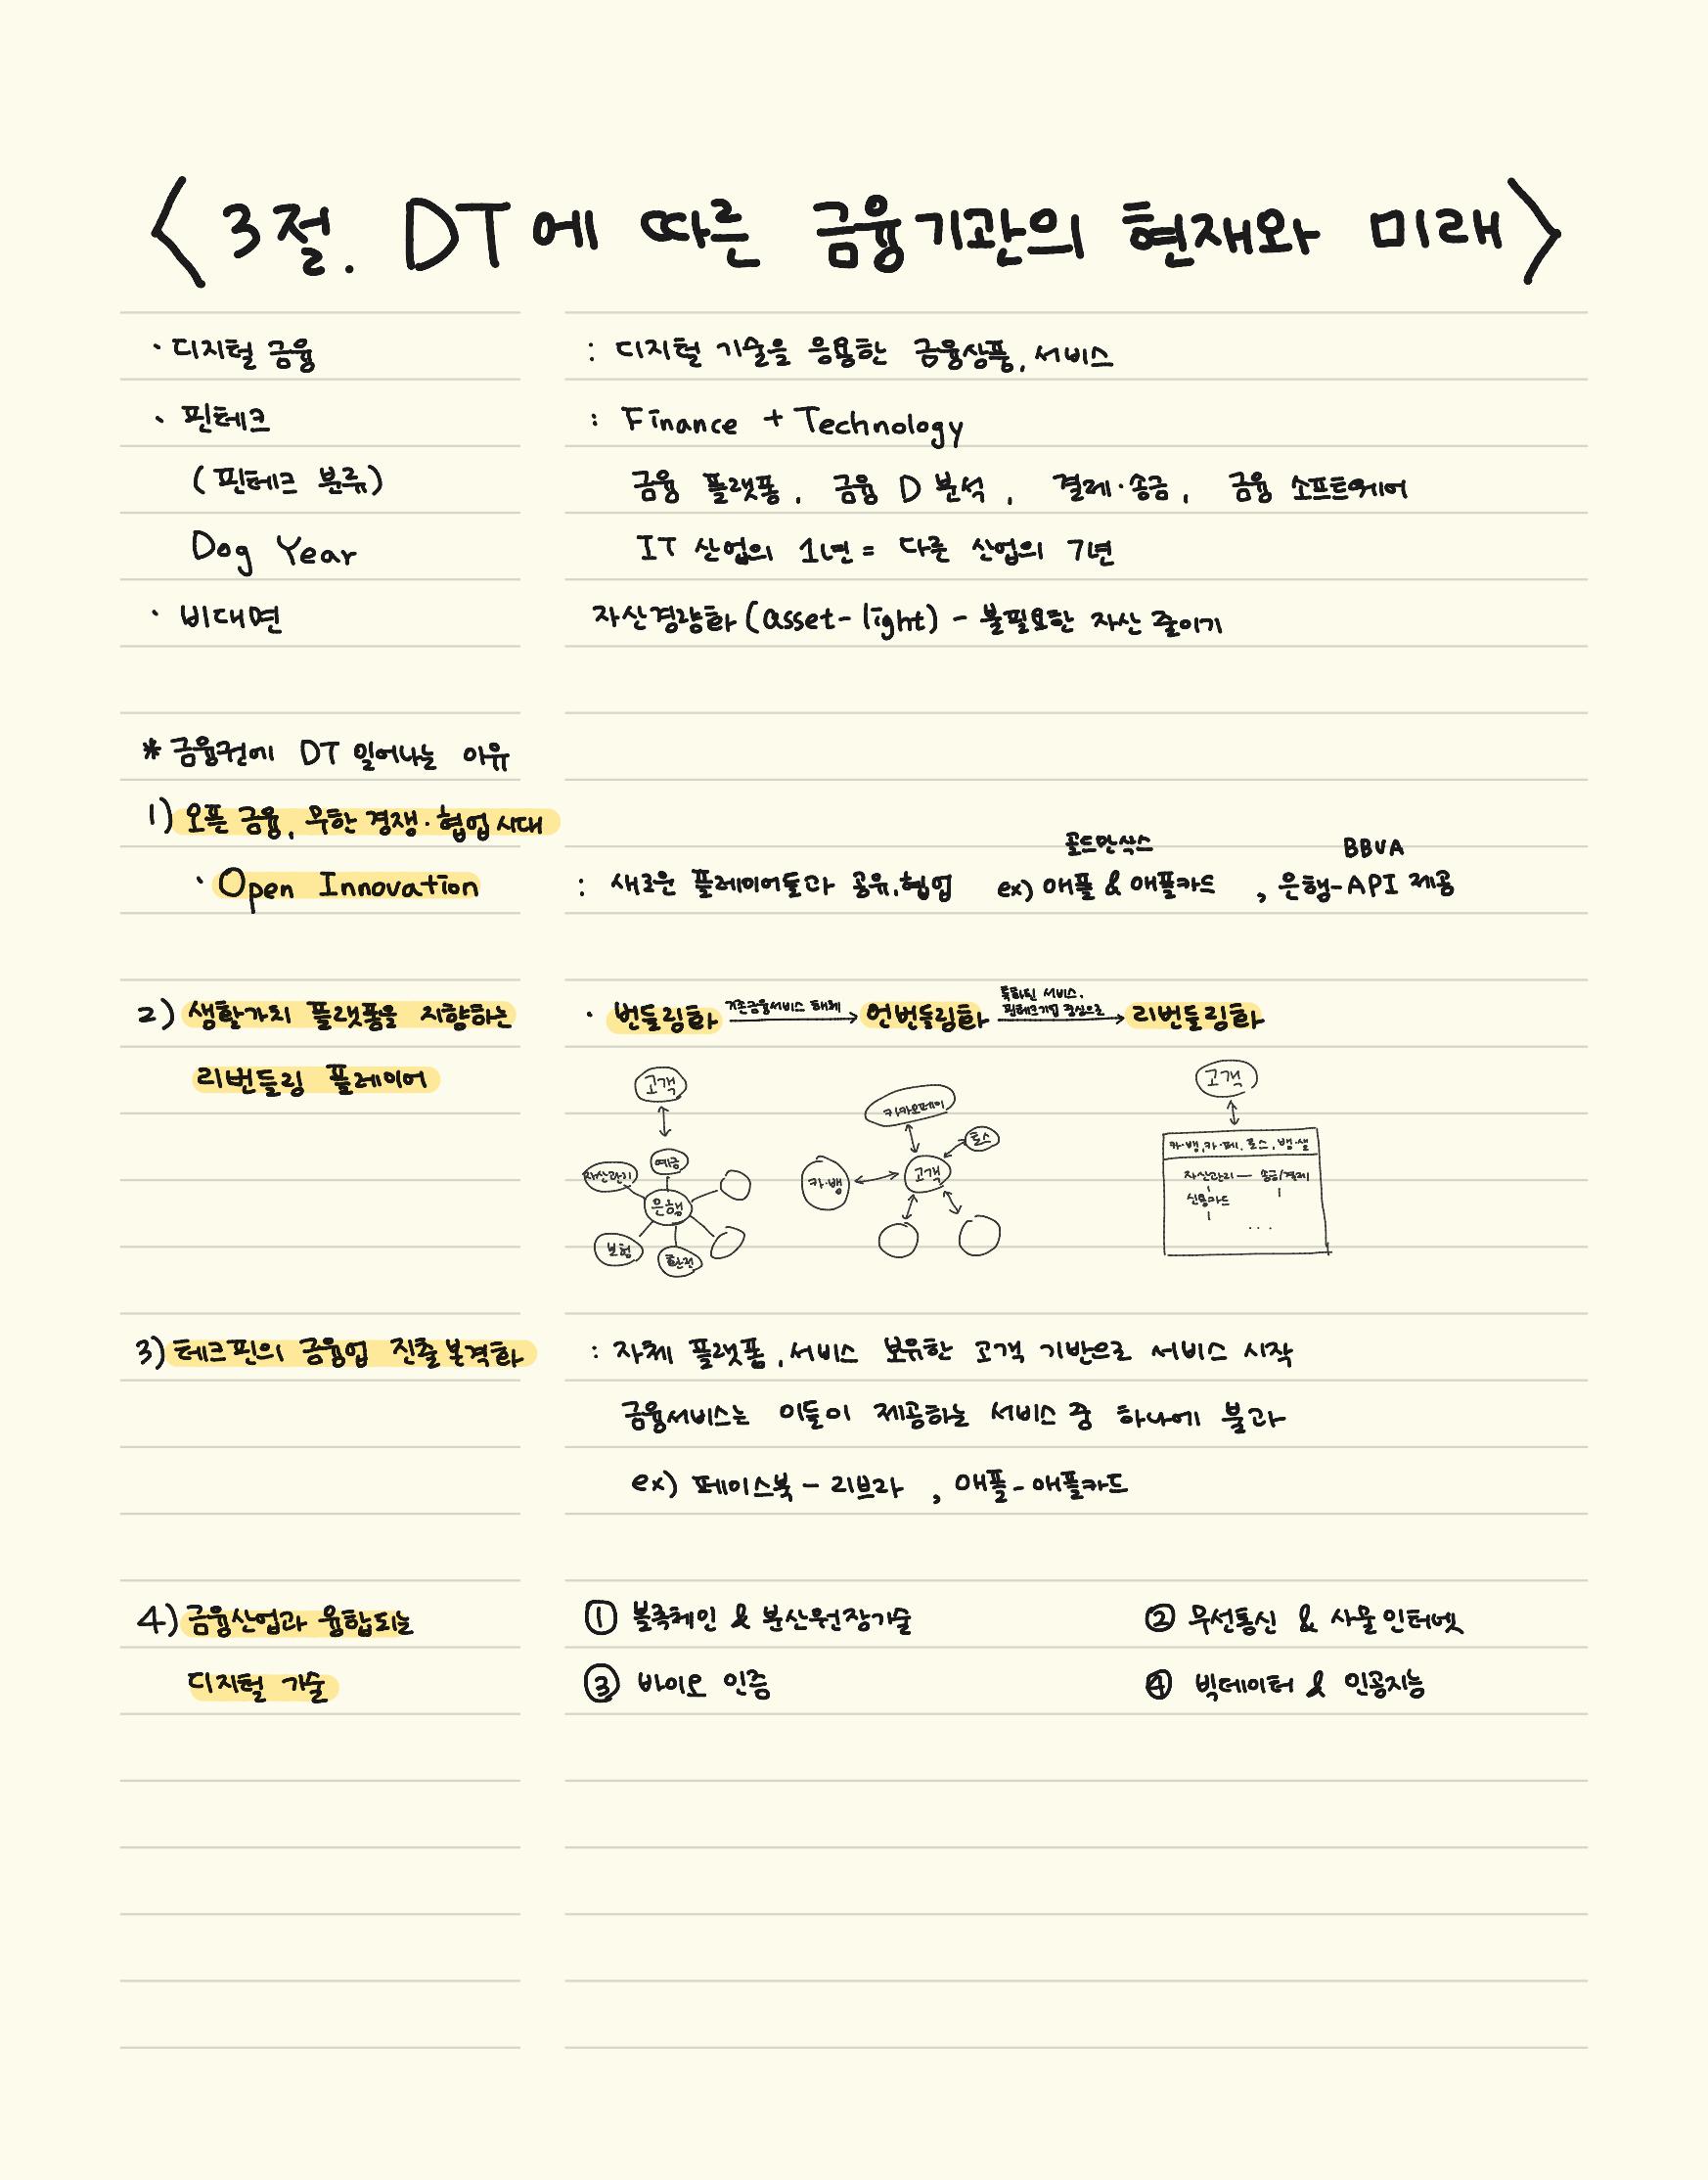 <3절. DT에 따른 금융기관의 현재와 미래>
· 디지털 금융 : 디지털 기술을 응용한 금융상품, 서비스
· 핀테크 : Finance + Technology
(핀테크 분류) 금융 플랫폼, 금융 D 분석, 결제·송금, 금융 소프트웨어
Dog Year IT 산업의 1년 = 다른 산업의 7년
· 비대면 자산경량화 (asset-light) - 불필요한 자산 줄이기
* 금융권에 DT 일어나는 이유
1) 오픈 금융, 무한 경쟁·협업 시대
골드만삭스 BBVA
· Open Innovation : 새로운 플레이어들과 공유, 협업 ex) 애플 & 애플카드, 은행-API 제공
2) 생활가치 플랫폼을 지향하는 · 번들링화 기존금융서비스 해체 → 언번들링화 특화된 서비스, 핀테크기업 중심으로 → 리번들링화
리번들링 플레이어
고객
예금
자산관리
은행
보험
환전
카카오페이
토스
카·뱅
고객
고객
카·뱅, 카·페, 토스, 뱅·샐
자산관리 — 송금/결제
신용카드
...
3) 테크핀의 금융업 진출 본격화 : 자체 플랫폼, 서비스 보유한 고객 기반으로 서비스 시작
금융서비스는 이들이 제공하는 서비스 중 하나에 불과
ex) 페이스북 - 리브라, 애플 - 애플카드
4) 금융산업과 융합되는 ① 블록체인 & 분산원장기술 ② 무선통신 & 사물인터넷
디지털 기술 ③ 바이오 인증 ④ 빅데이터 & 인공지능